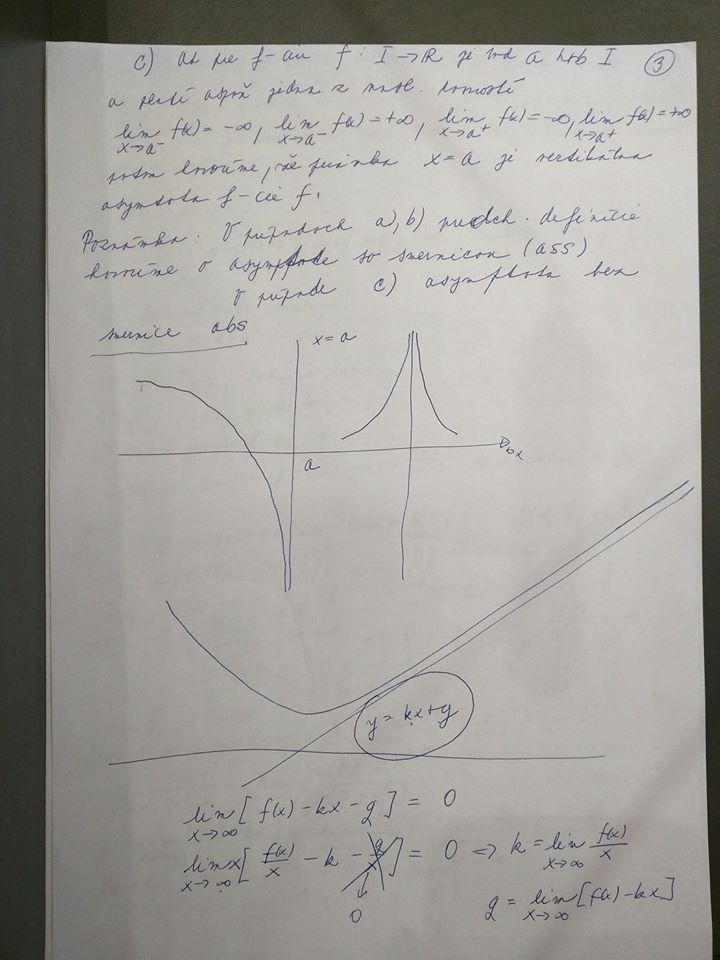 c) ak pre f-ciu f: I→R je bod a hrb I ③
a platí aspoň jedna z nasl. rovností
lim x→a⁻ f(x) = -∞, lim x→a⁻ f(x) = +∞, lim x→a⁺ f(x) = -∞, lim x→a⁺ f(x) = +∞
potom hovoríme, že priamka x=a je vertikálna
asymptota f-cie f.
Poznámka: V prípadoch a), b) predch. definície
hovoríme o asymptote so smernicou (ASS)
V prípade c) asymptota bez
smernice abs
x=a
a
y = kx+q
lim x→∞ [f(x) - kx - q] = 0
lim x→∞ x[f(x)/x - k - q/x] = 0 => k = lim x→∞ f(x)/x
0 q = lim x→∞ [f(x) - kx]